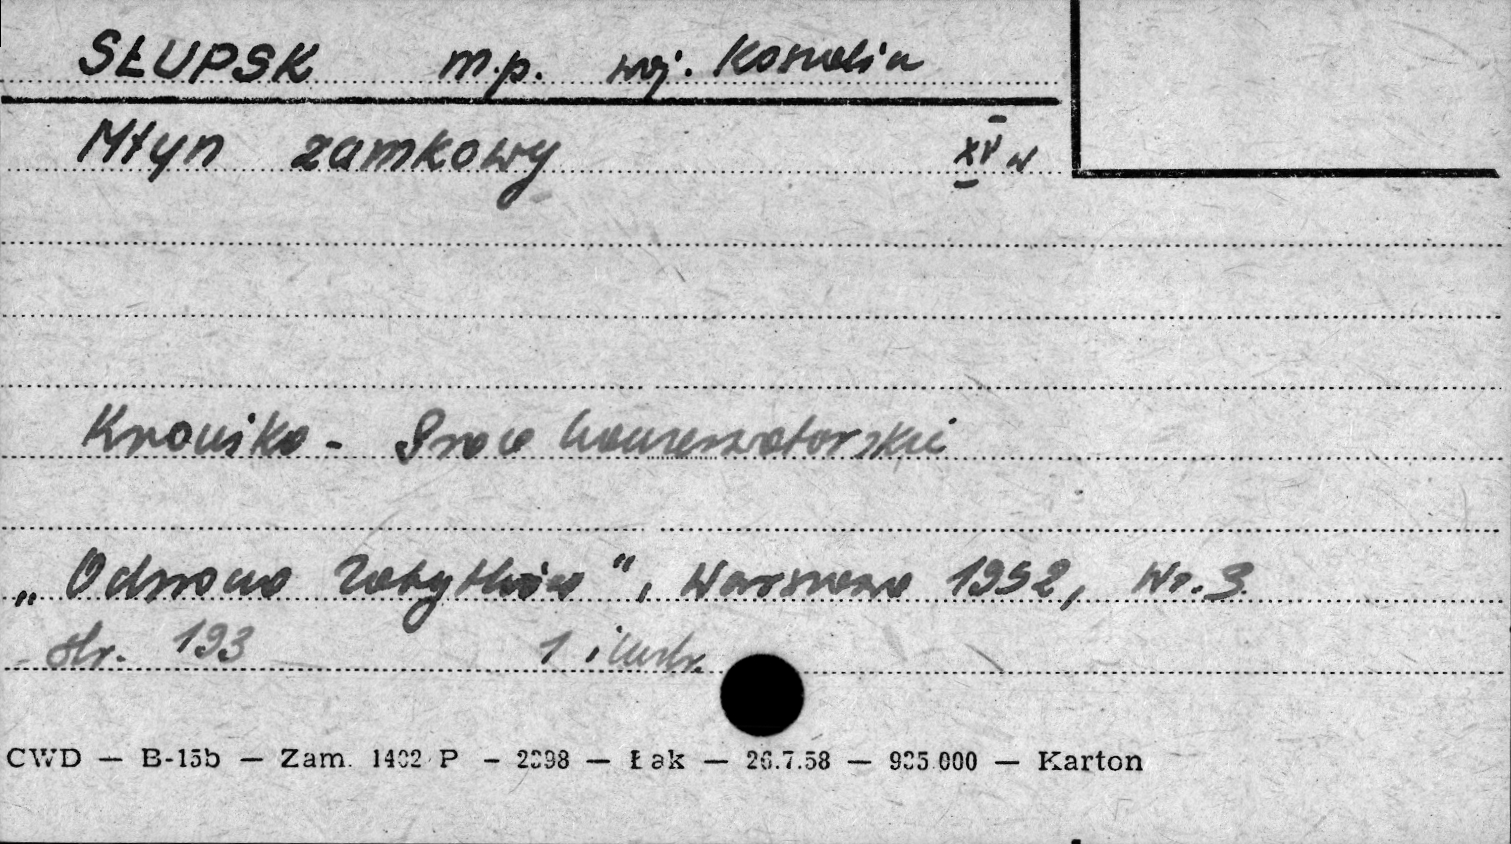 SŁUPSK m.p. woj. Koszalin
Młyn zamkowy XV w
Kronika - Prace konserwatorskie
„Ochrona Zabytków", Warszawa 1952, Nr. 3
str. 193 1 ilustr.
CWD — B-15b — Zam. 1402 P — 2398 — Łak — 26.7.58 — 935.000 — Karton